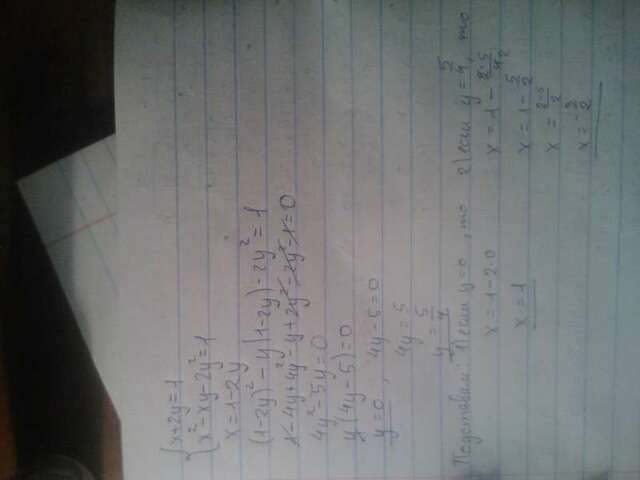 {x+2y=1
{x²-xy-2y²=1
x=1-2y
(1-2y)²-y(1-2y)-2y²=1
1-4y+4y²-y+2y²-2y²-1=0
4y²-5y=0
y(4y-5)=0
y=0, 4y-5=0
4y=5
y=5/4
Подставим: 1) если y=0, то
x=1-2·0
x=1
2) если y=5/4, то
x=1-2·5/4
x=1-5/2
x=2-5/2
x=-3/2